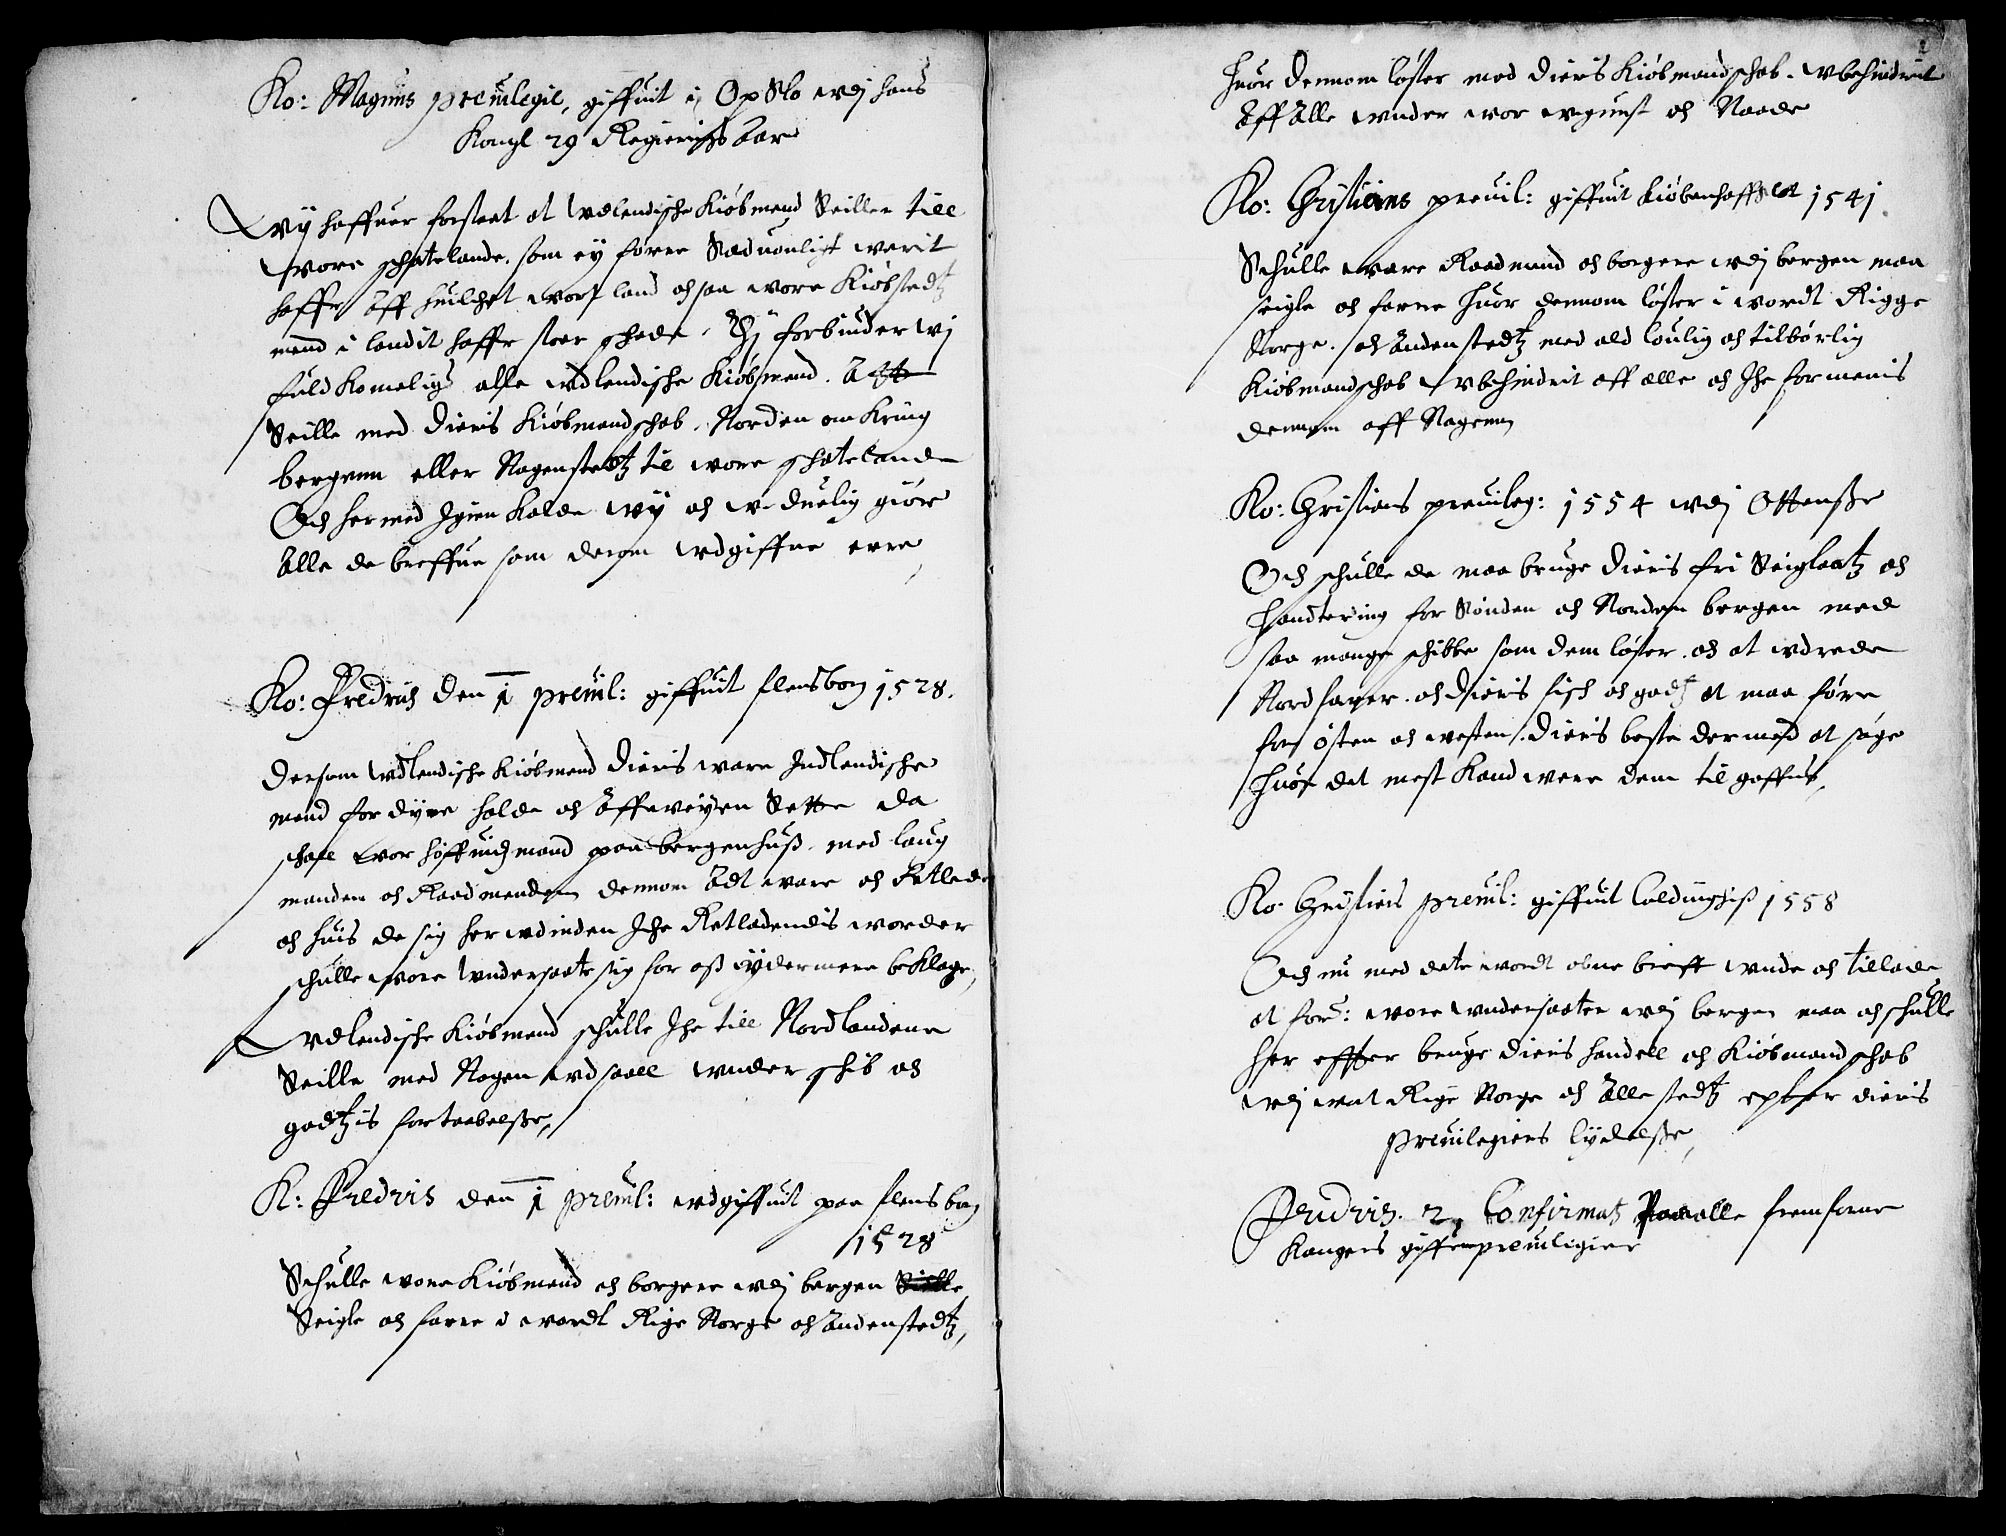 Ko: Magnus preuilegie, giffuit i OpSlo wdj hans
Kongl 29 Regierings Aar
Wij haffuer forstaet at wdlendische Kiøbmend Seiller till
wore schatelande. som ej førre Sæduonligt werit
haffr Aff huilchet wort land och saa wore Kiøbstedtz
mend i landit haffr stoer schade. Thj forbiuder wj
fuldkomelig alle wdlendische Kiøbmend. Att
Seille med dieris Kiøbmandschab. Norden omKring
bergenn eller Nogenstedtz til wore schatelande
Och hermed Igien Kalde wij och w-duelig giøre
Alle de breffue som derom wdgiffne ere,
Ko: Fredrich den 1 preuil: giffuit flensborg 1528.
Dersom wdlendische Kiøbmend dieris ware Indlendische
mend for dyre holde och Affveijen Sette da
schall wor høffuidzmand paa bergenhuß. med laug
manden och Raadmendenn dennom Adt ware och Retlede
och huis de sig her wdinden Iche Retledendis worder
schulle wore wndersaate sig for oß ÿdermere beklage,
Wdlendische Kiøbmend schulle Iche till Nordlandene
Seille med Nogen wdsaell wnder schib och
godtzis fortabelße,
K: Fredrich den 1 preuil: wdgiffuit paa flensborg
1528
Schulle wore Kiøbmend och borgere wdj bergen Seille
Seigle och farre i wordt Rige Norge och Andenstedtz,
2
huor dennom løster med dieris Kiøbmandschab. wbehindret
Aff Alle wnder wor wgunst och Naade
Ko: Christians preuil: giffuit Kiøbenhaffs 1541
Schulle ware Raadmend och borgere wdj bergen maa
seigle och farre huor dennom løster i wordt Rigge
Norge. och Andenstedtz med ald loulig och tilbørlig
Kiøbmandschab wbehindrit aff alle och Iche formenis
dennem aff Nogenn
Ko: Christians preuileg: 1554 wdj Ottenße
Och schulle de maa bruge dieris fri Seiglaatz och
handtering for Sønden och Norden bergen med
saa mange schibbe som dem løster. och at wdrede
Nordfarer. och dieris fisch och godz at maa føre
for østen och westen. dieris beste dermed at søge
huor det mest Kand were dem til gaffns,
Ko: Christiens preuil: giffuit Coldinghuß 1558
Och nu med dete wordt obne breff wnde och tillade
at forⁿ: wore wndersaatter wdj bergen maa och schulle
her effter bruge dieris handell och Kiøbmandschab
wdj wort Rige Norge och Alle stedtz epter dieris
preuilegiers lÿdelße,
Fridrich. 2, Confirmatz Paa alle fremfarne
Kongers giffne preuiligier